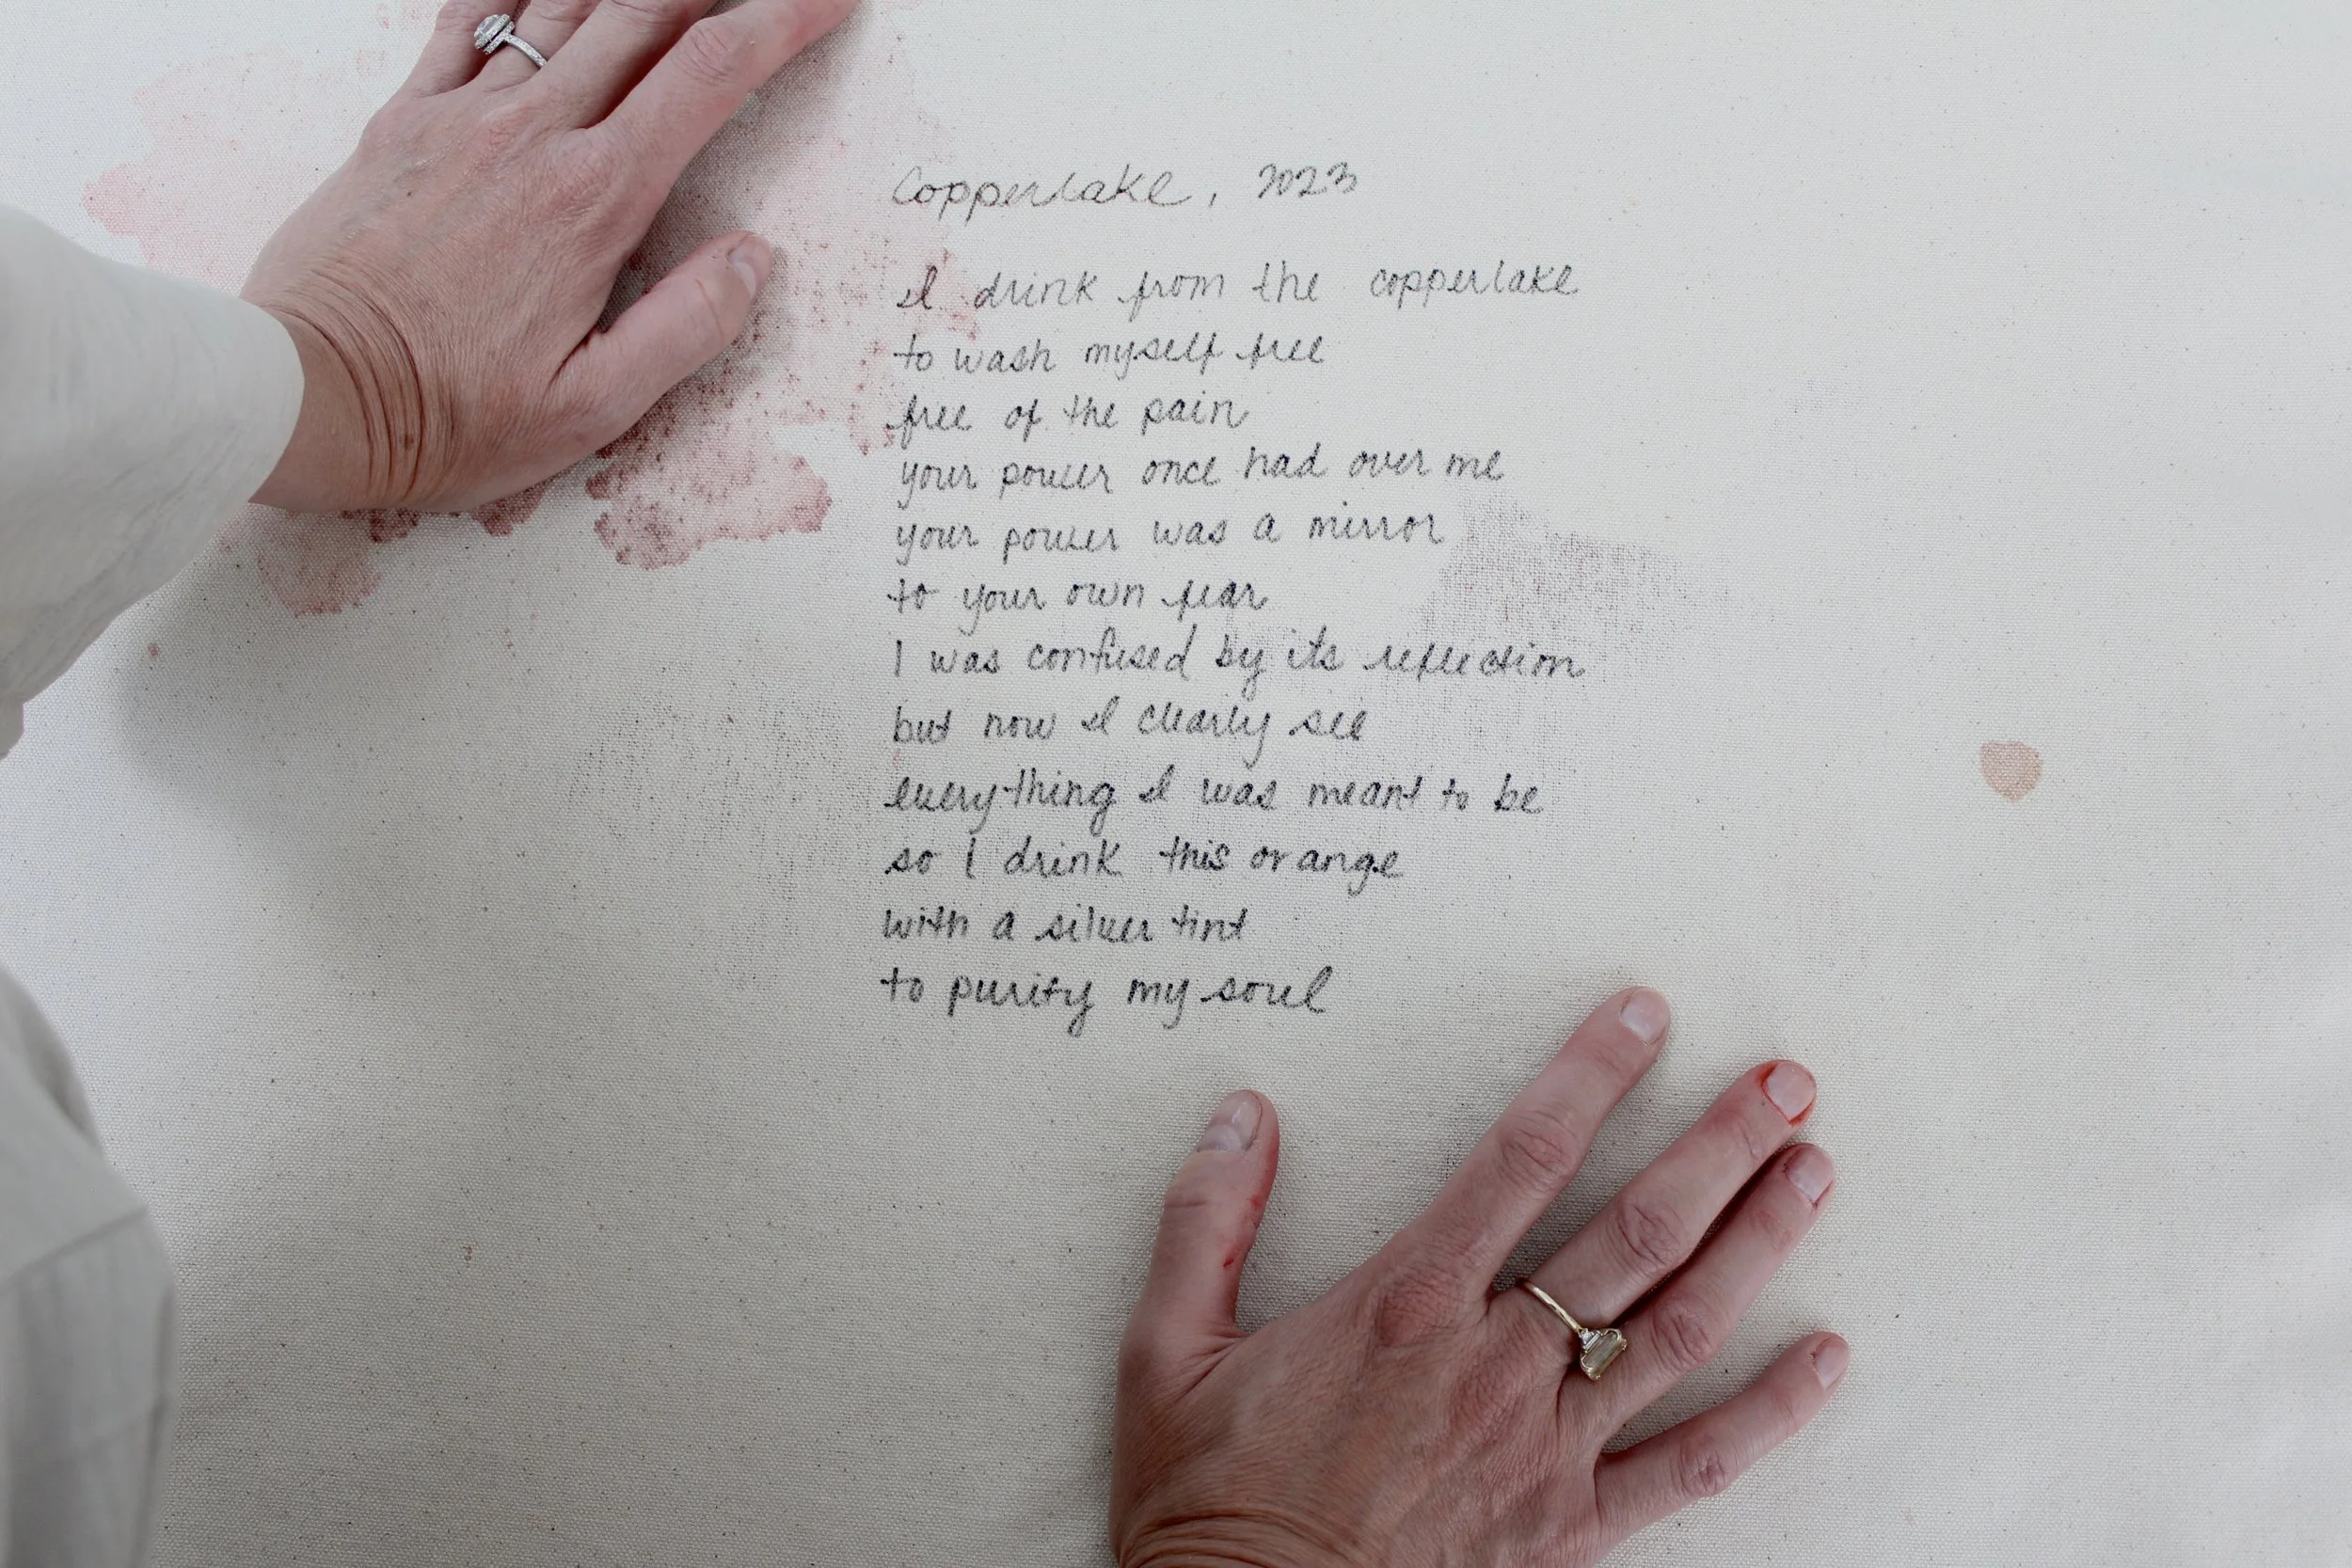 Copperlake, 2023
I drink from the copperlake
to wash myself free
free of the pain
your power once had over me
your power was a mirror
to your own fear
I was confused by its reflection
but now I clearly see
everything I was meant to be
so I drink this orange
with a silver tint
to purify my soul